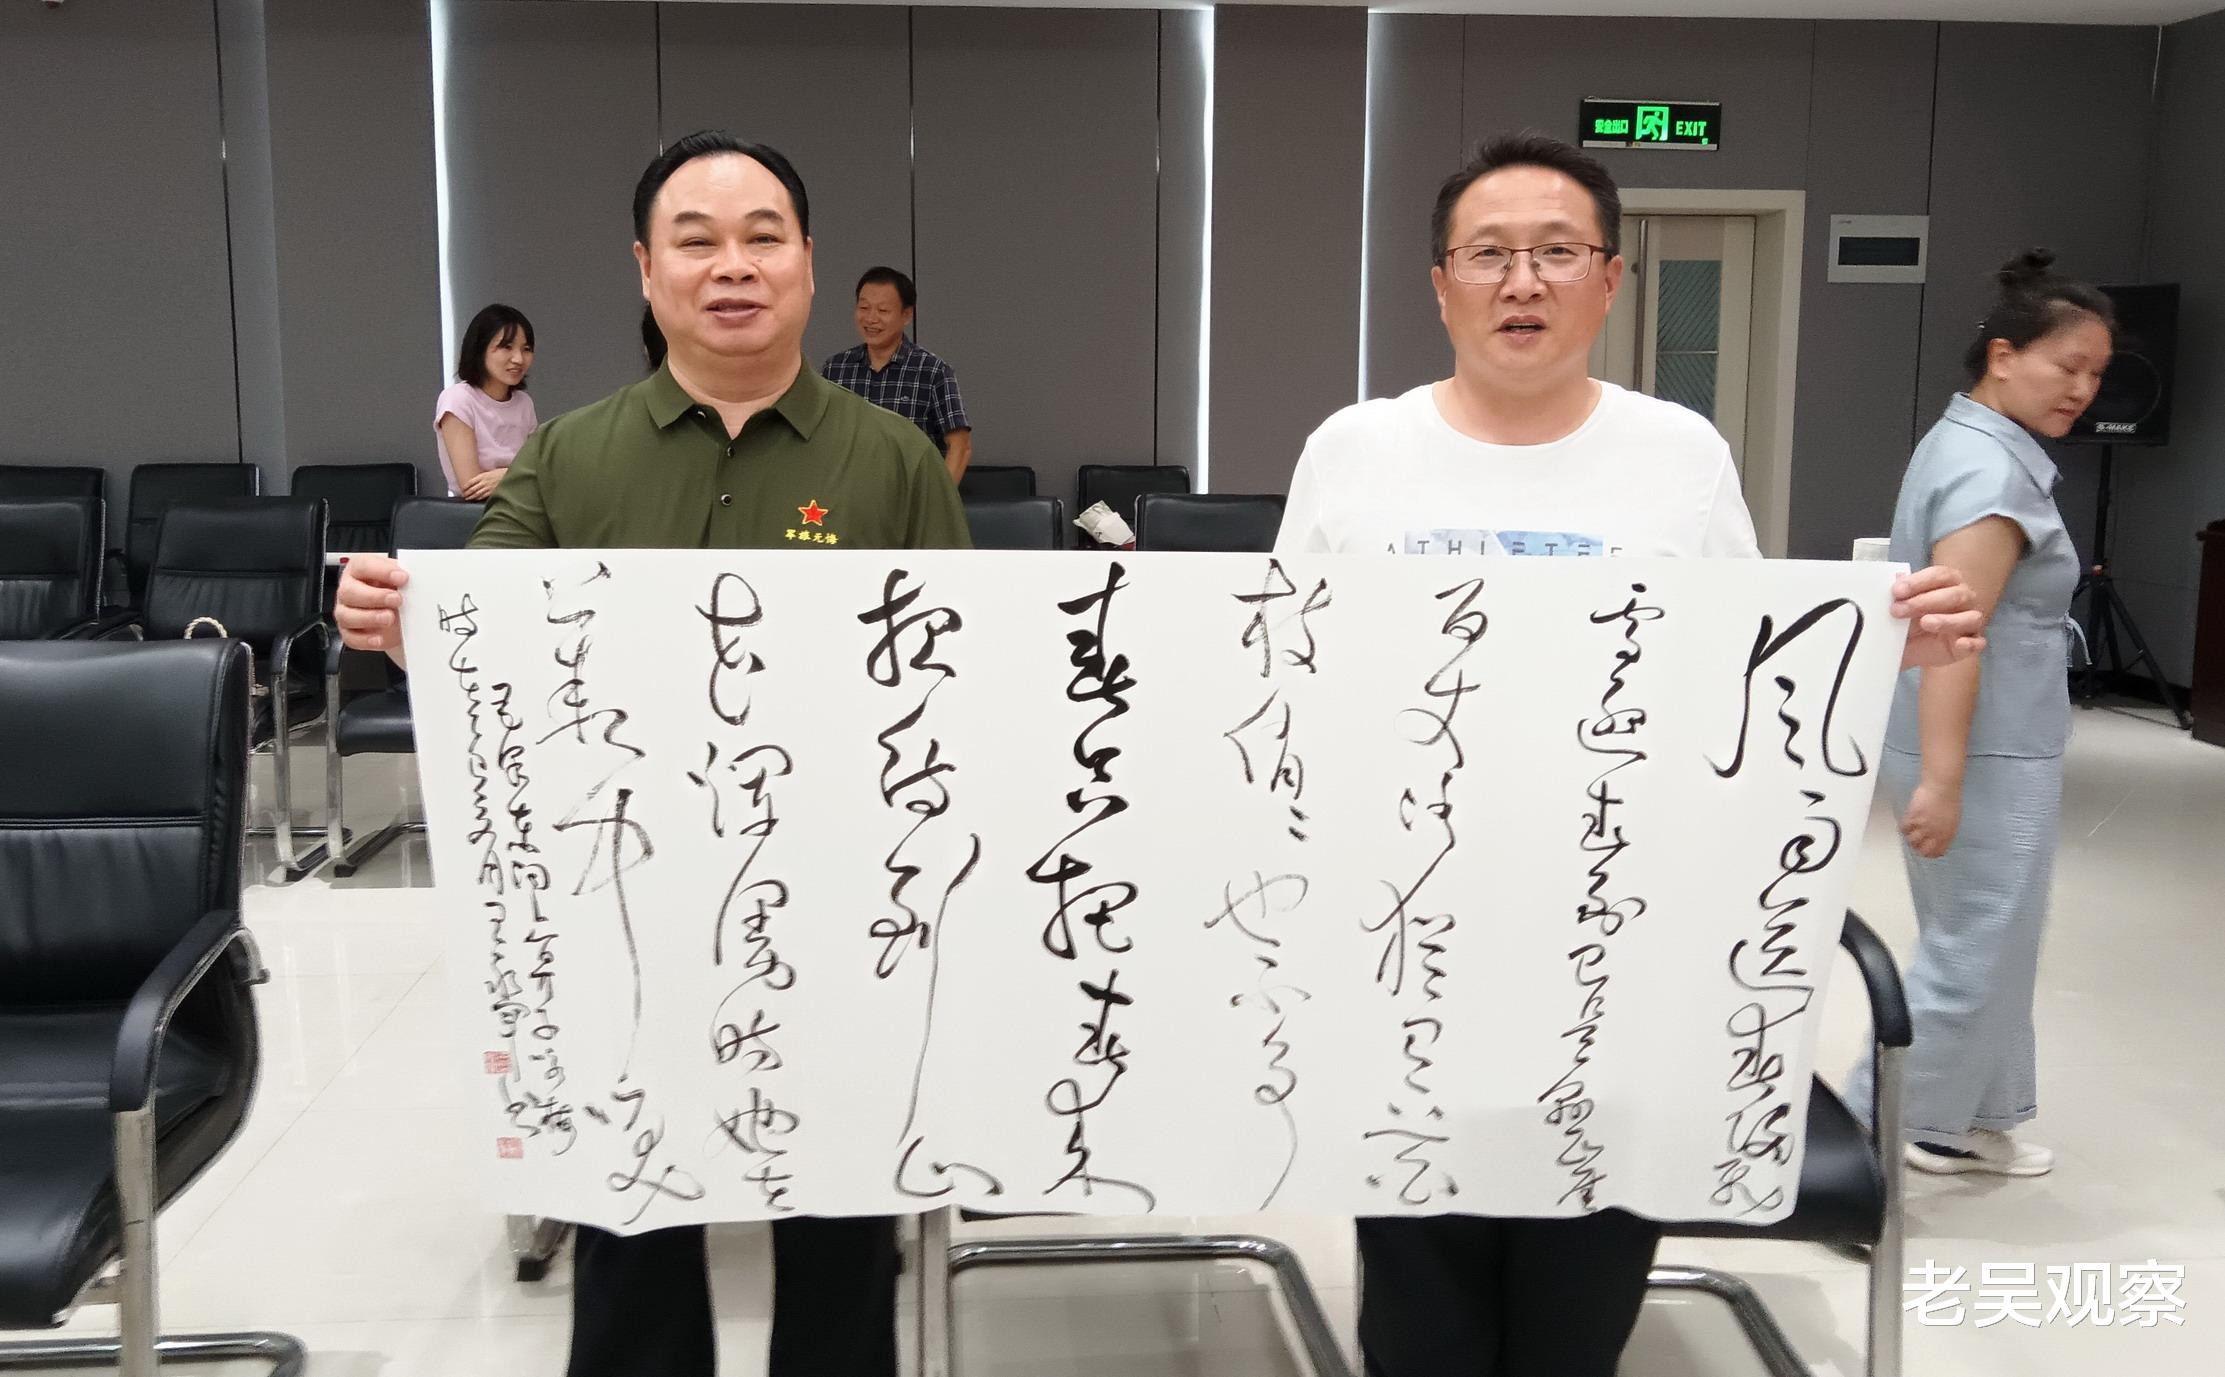 安全出口 EXIT
军旅无悔
ATHLETE
风雨送春归飞
雪迎春到已是悬崖
百丈冰犹有花
枝俏〻也不争
春只把春来
报待到山
花烂漫时她在
丛中笑
毛泽东词卜算子咏梅
时在乙巳夏月
老吴观察